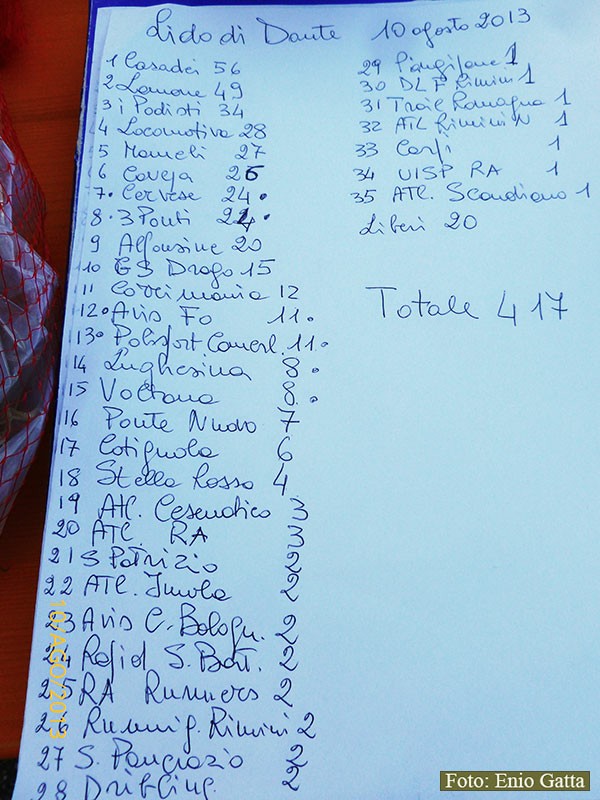 Lido di Dante 10 agosto 2013
1 Casadei 56
2 Lamone 49
3 i Podisti 34
4 Locomotiva 28
5 Mameli 27
6 Caveja 26
7. Cervese 24.
8. 3 Ponti 24.
9 Alfonsine 20
10 GS Drago 15
11 Corrimania 12
12. Avis Fo 11.
13. Polisport Comerl. 11.
14 Lughesina 8.
15 Voltana 8.
16 Ponte Nuovo 7
17 Cotignola 6
18 Stella Rossa 4
19 Atl. Cesenatico 3
20 ATL. RA 3
21 S Patrizio 2
22 ATL. Imola 2
23 Avis C. Bologn. 2
24 Rapid S. Bart. 2
25 RA Runners 2
26 Runnig. Rimini 2
27 S. Pangrazio 2
28 Dribling. 2
29 1
30 DLF Rimini 1
31 Trail Romagna 1
32 ATL Rimini N 1
33 Carpi 1
34 UISP RA 1
35 ATL. Scandiano 1
Liberi 20
Totale 417
10/AGO/2013
Foto: Enio Gatta